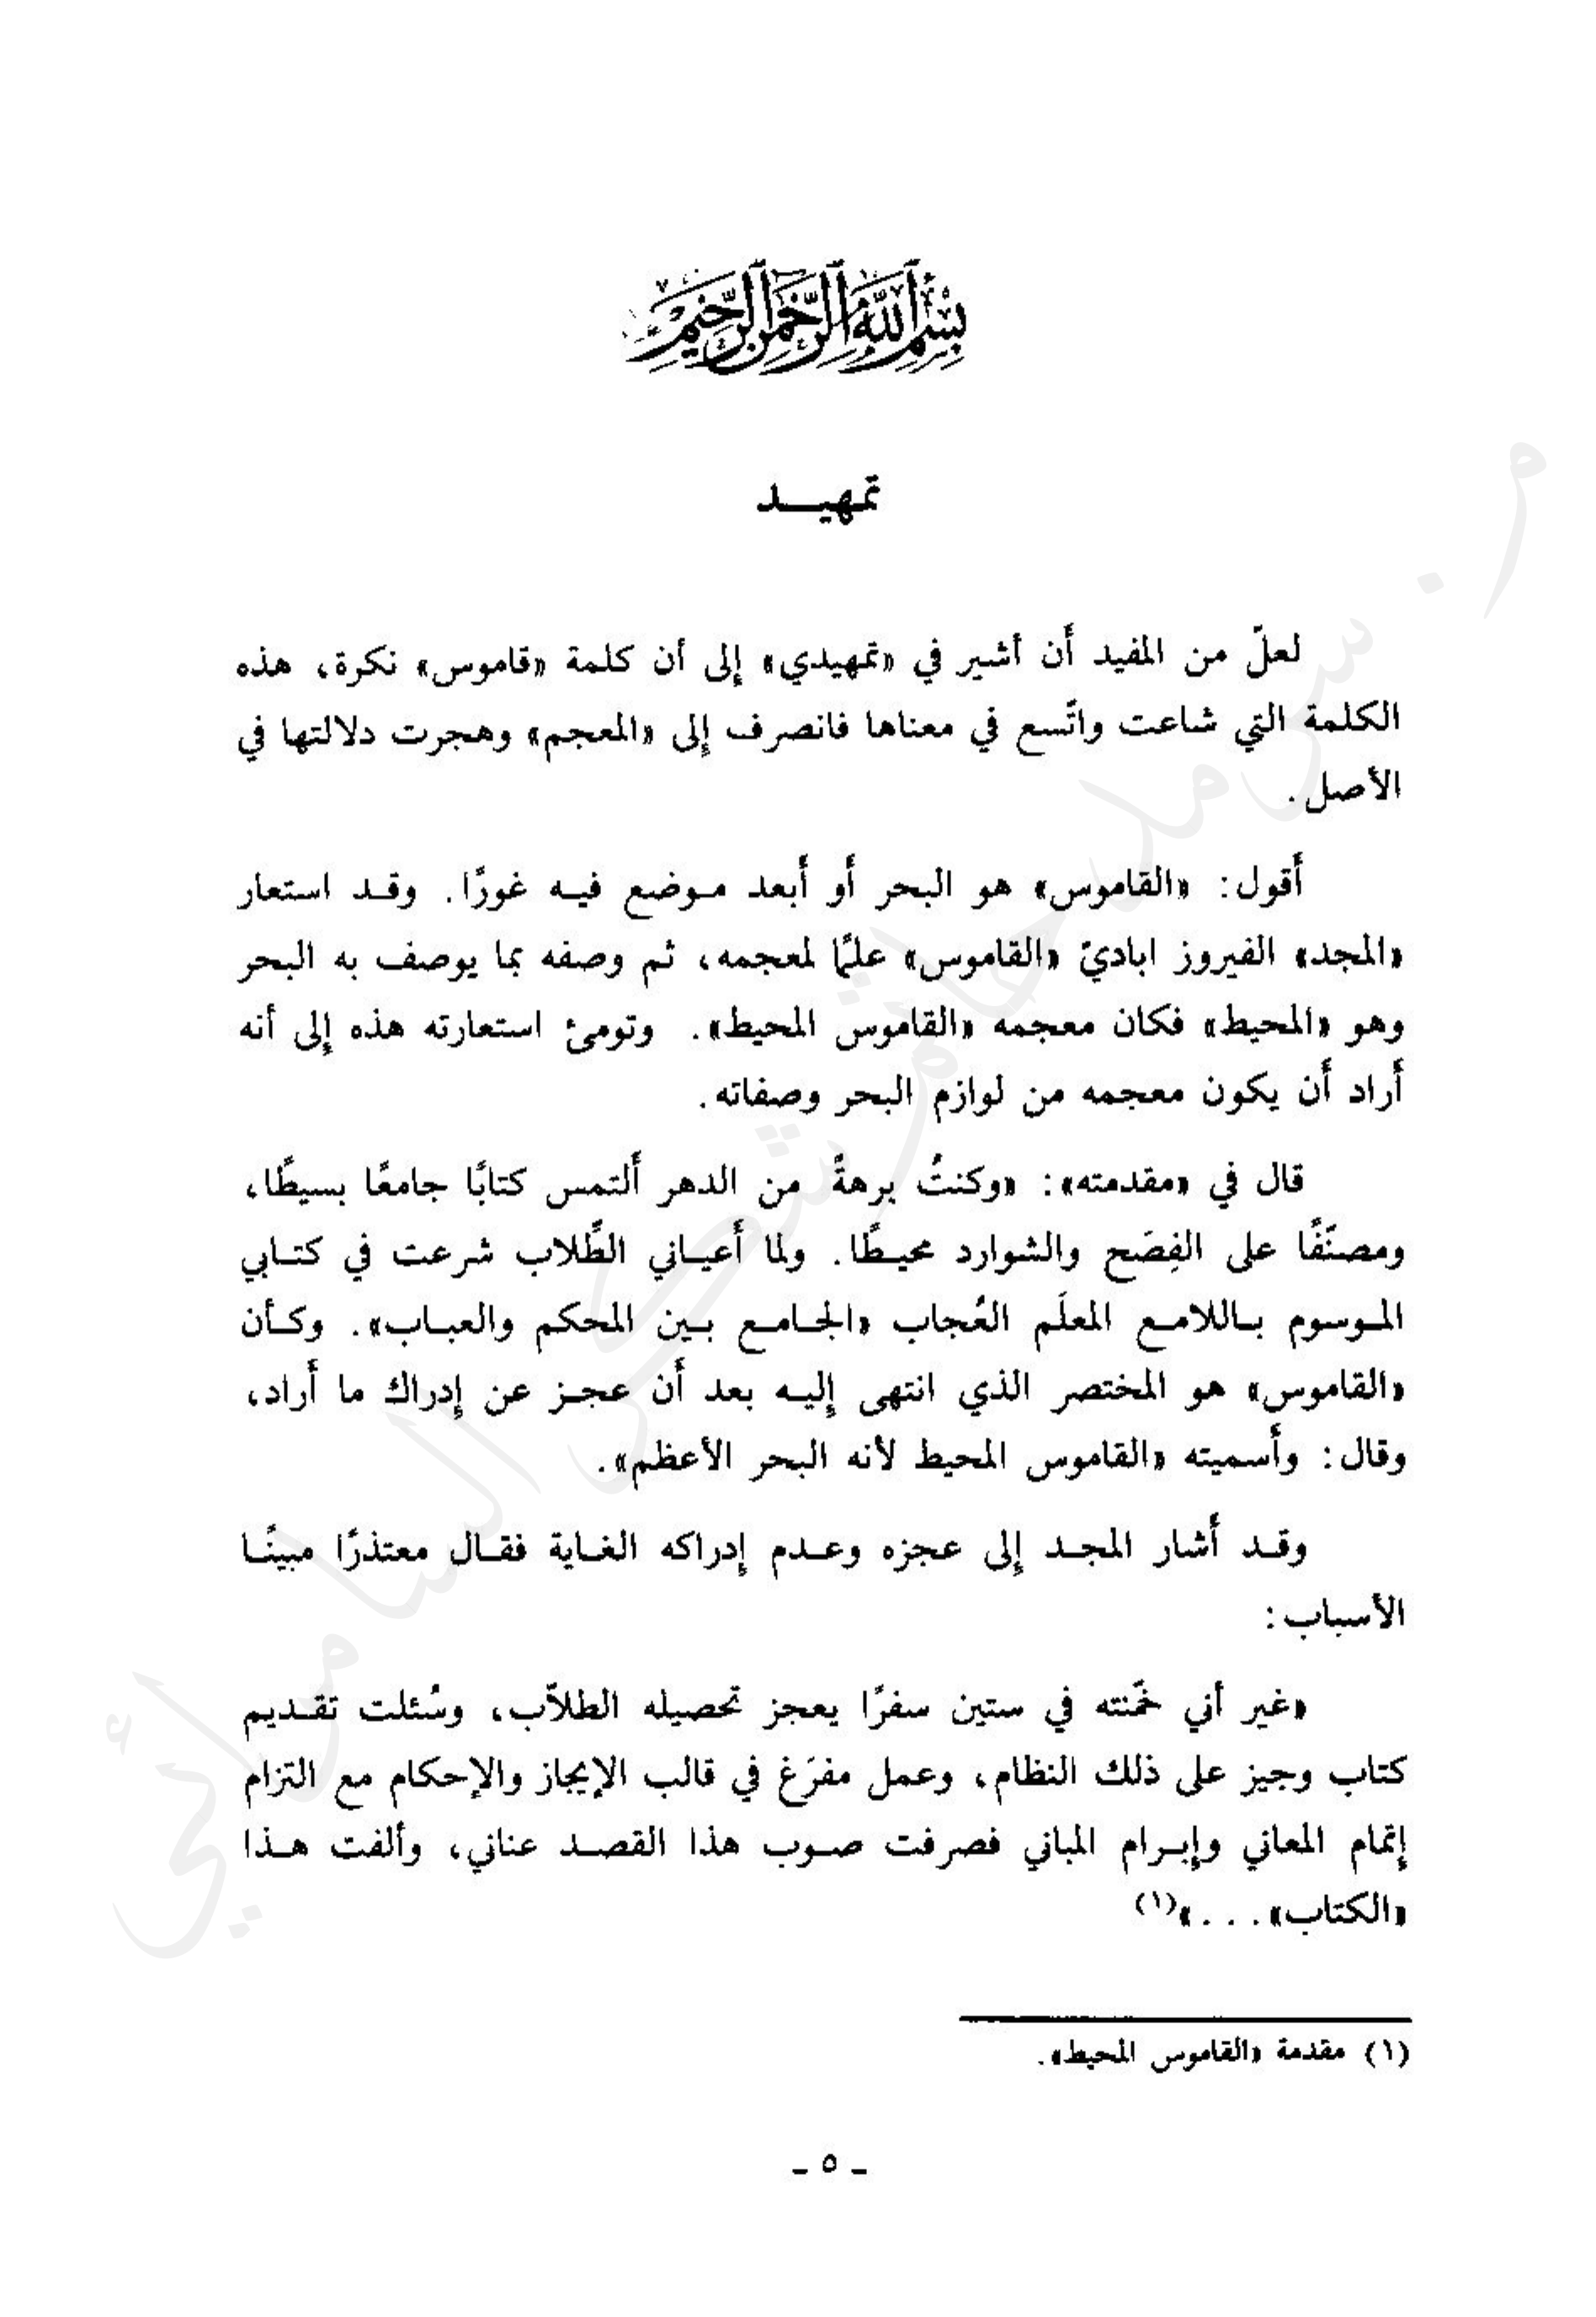 بسم الله الرحمن الرحيم
تمهيد
لعلّ من المفيد أَن أشير في «تمهيدي» إلى أن كلمة «قاموس» نكرة، هذه
الكلمة التي شاعت واتّسع في معناها فانصرف إلى «المعجم» وهجرت دلالتها في
الأصل.
أَقول: «القاموس» هو البحر أَو أَبعد موضع فيه غورًا. وقد استعار
«المجد» الفيروز اباديّ «القاموس» علمًا لمعجمه، ثم وصفه بما يوصف به البحر
وهو «المحيط» فكان معجمه «القاموس المحيط». وتومئ استعارته هذه إلى أنه
أَراد أَن يكون معجمه من لوازم البحر وصفاته.
قال في «مقدمته»: «وكنتُ برهةً من الدهر أَلتمس كتابًا جامعًا بسيطًا،
ومصنّفًا على الفِصَح والشوارد محيطًا. ولما أَعياني الطِّلاب شرعت في كتابي
الموسوم باللامع المعلَم العُجاب «الجامع بين المحكم والعباب». وكأن
«القاموس» هو المختصر الذي انتهى إليه بعد أَن عجز عن إدراك ما أَراد،
وقال: وأَسميته «القاموس المحيط لأنه البحر الأعظم».
وقد أَشار المجد إلى عجزه وعدم إدراكه الغاية فقال معتذرًا مبينًا
الأسباب:
«غير أني خمّنته في ستين سفرًا يعجز تحصيله الطلاّب، وسُئلت تقديم
كتاب وجيز على ذلك النظام، وعمل مفرَغ في قالب الإيجاز والإحكام مع التزام
إتمام المعاني وإبرام المباني فصرفت صوب هذا القصد عناني، وألفت هذا
«الكتاب»...»(١)
(١) مقدمة «القاموس المحيط».
- ٥ -